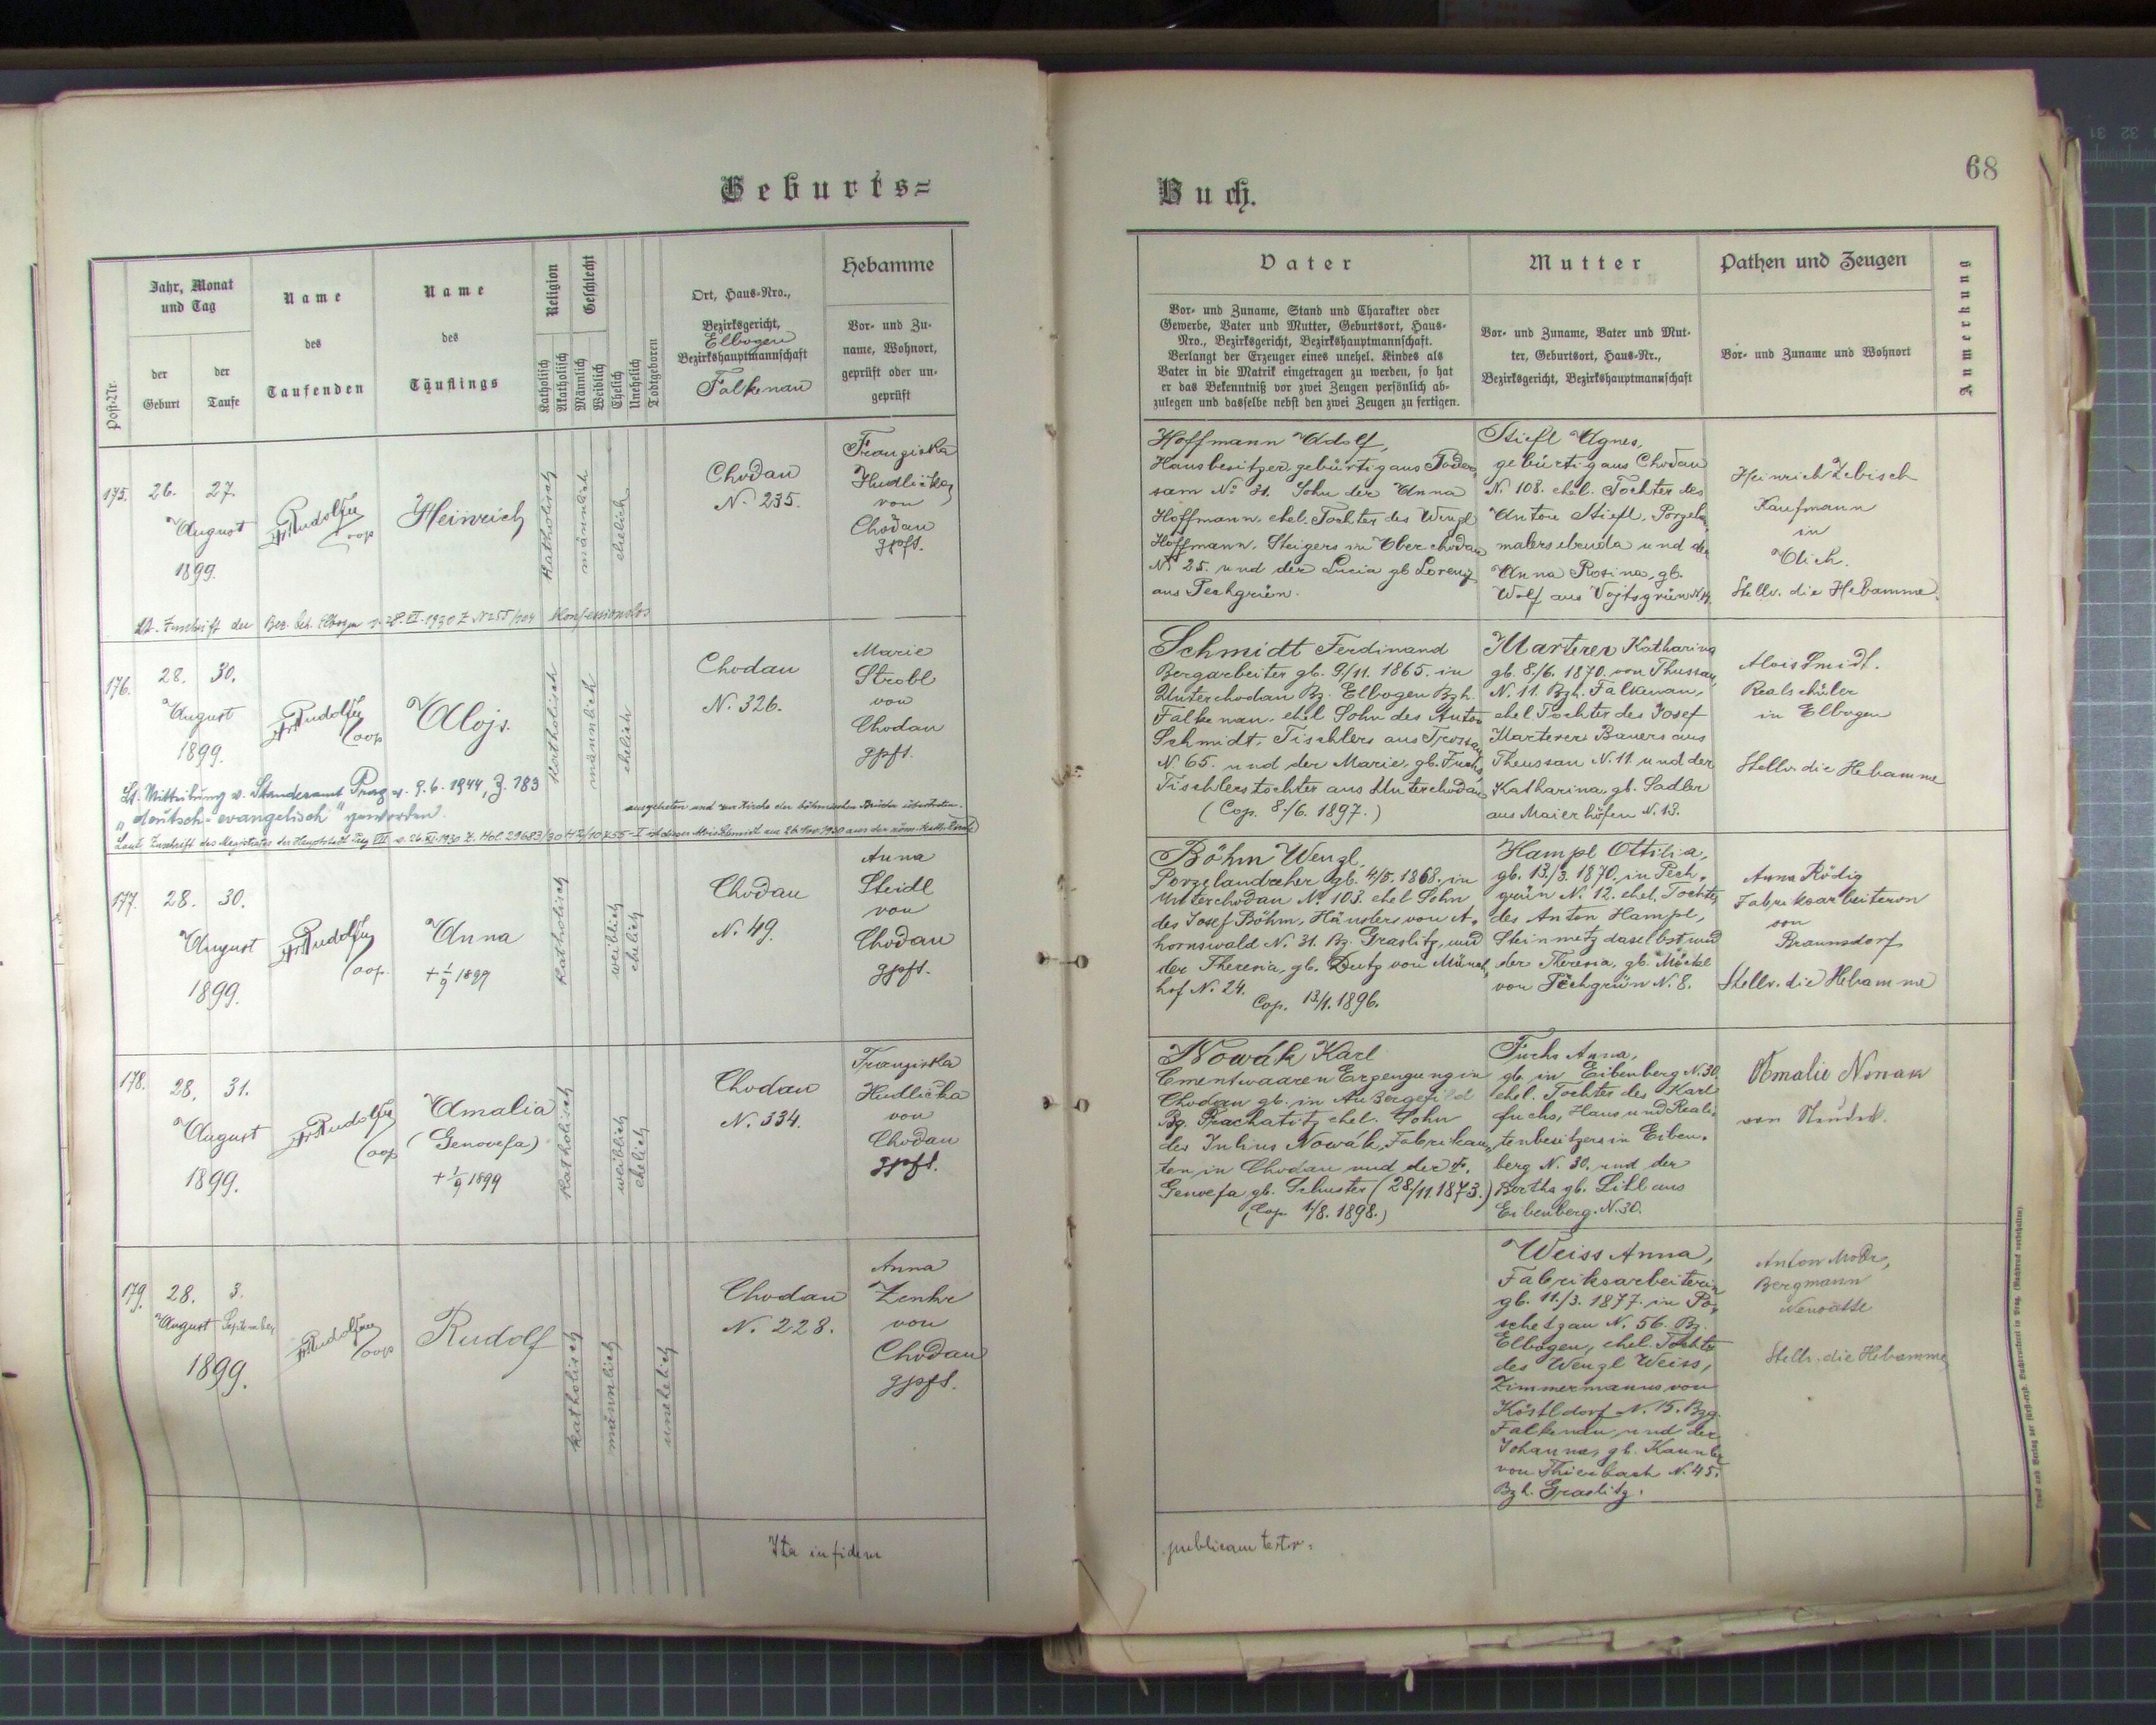 Geburts=
Post-Nr.
Jahr, Monat
und Tag
der
Geburt
der
Taufe
Name
des
Taufenden
Name
des
Täuflings
Religion
Katholisch
Akatholisch
Geschlecht
Männlich
Weiblich
Ehelich
Unehelich
Todtgeboren
Ort, Haus-Nro.,
Bezirksgericht,
Elbogen
Bezirkshauptmannschaft
Falkenau
Hebamme
Vor- und Zu-
name, Wohnort,
geprüft oder un-
geprüft
175.
26. 27.
August
1899.
Rudolf
coop
Heinrich
katholisch
männlich
ehelich.
Chodau
N. 235.
Franziska
Hudlička
von
Chodau
gpft.
Lt. Zuschrift der Bez. beh. Elbogen v. 28. VI. 1930 Z. konfessionslos
176.
28. 30.
August
1899.
Rudolf
coop
Alojs.
katholisch
männlich
ehelich
Chodau
N. 326.
Marie
Strobl
von
Chodau
gpft.
Lt. Mitteilung v. Standesamt Prag v. 9. 6. 1944, Z. 783
"deutsch-evangelisch" geworden.
ausgetreten und zur Kirche der böhmischen Brüder übertreten.
Laut Zuschrift des Magistrates der Hauptstadt Prag VII
177.
28. 30.
August
1899.
Rudolf
coop.
Anna
+ 1/9 1899
katholisch
weiblich
ehelich
Chodau
N. 49.
Anna
Steidl
von
Chodau
gpft.
178.
28. 31.
August
1899.
Rudolf
coop
Amalia
(Genovefa)
+ 1/9 1899
katholisch
weiblich
ehelich
Chodau
N. 334.
Franziska
Hudlička
von
Chodau
gpft.
179.
28. 3.
August September
1899.
Rudolf
coop
Rudolf
katholisch
männlich
unehelich
Chodau
N. 228.
Anna
Zenker
von
Chodau
gpft.
Ita in fidem
Buch.
68
Vater
Vor- und Zuname, Stand und Charakter oder
Gewerbe, Vater und Mutter, Geburtsort, Haus-
Nro., Bezirksgericht, Bezirkshauptmannschaft.
Verlangt der Erzeuger eines unehel. Kindes als
Vater in die Matrik eingetragen zu werden, so hat
er das Bekenntniß vor zwei Zeugen persönlich ab-
zulegen und dasselbe nebst den zwei Zeugen zu fertigen.
Mutter
Vor- und Zuname, Vater und Mut-
ter, Geburtsort, Haus-Nr.,
Bezirksgericht, Bezirkshauptmannschaft
Pathen und Zeugen
Vor- und Zuname und Wohnort
Anmerkung
Hoffmann Adolf,
Hausbesitzer, gebürtig aus Poder,
sam No 31. Sohn der Anna
Hoffmann, ehel. Tochter des Wenzl
Hoffmann, Steigers in Ober chodau
No 25. und der Lucia gb Lorenz
aus Pechgrün.
Stiefl Agnes,
gebürtig aus Chodau
N. 108. ehel. Tochter des
Anton Stiefl, Porzelan
malers ebenda und der
Anna Rosina, gb.
Wolf aus Vojtsgrün N.
Heinrich Zebisch
Kaufmann
in
Stellv. die Hebamme.
Schmidt Ferdinand
Bergarbeiter gb. 9/11. 1865. in
Unterchodau Bz. Elbogen Bzh.
Falkenau. ehel Sohn des Anton
Schmidt, Tischlers aus
N. 65. und der Marie, gb. Fuchs,
Tischlerstochter aus Unterchodau
(Cop. 8./6. 1897.)
Marterer Katharina
gb. 8./6. 1870. von Thussau,
N. 11. Bzh. Falkenau,
ehel Tochter des Josef
Marterer Bauers aus
Theussau N. 11. und der
Katharina, gb. Sadler
aus Maierhöfen N. 13.
Alois Smidt.
Realschüler
in Elbogen
Stellv. die Hebamme
Böhm Wenzl,
Porzelandreher gb. 4/5. 1868. in
Unterchodau No 103. ehel Sohn
des Josef Böhm, Häuslers von A.
hornswald N. 31. Bz. Graslitz, und
der Theresia, gb. Dutz von Münch
hof N. 24.
Cop. 13/1. 1896.
Hampl Ottilia,
gb. 13./3. 1870. in Pech.
grün N. 12. ehel. Tochter
des Anton Hampl,
Steinmetz daselbst und
der Theresia, gb. Möckl
von Pechgrün N. 8.
Anna Rödig
Fabriksarbeiterin
von
Braunsdorf
Stellv. die Hebamme
Nowák Karl
Cementwaaren Erzeugung in
Chodau gb. in Außergefild
Bz. Prachatitz ehel. Sohn
des Julius Nowák, Fabrikan,
ten in Chodau und der
Genovefa gb. Schuster (28/11. 1873.)
(Cop. 1/8. 1898.)
Fuchs Anna,
gb. in Eibenberg N. 30.
ehel. Tochter des Karl
Fuchs, Haus und Reali,
tenbesitzers in Eiben.
berg N. 30. und der
Bertha gb. Lill aus
Eibenberg. N. 30.
Amalie Nowak
von
Weiss Anna,
Fabriksarbeiterin
gb. 11./3. 1877. in Po,
schetzau N. 56. Bz.
Elbogen, ehel. Tochter
des Wenzl Weiss,
Zimmermanns von
Köstldorf N. 15. Bzg.
Falkenau, und der
Johanna, gb.
von Thierbach N. 45.
Bzh. Graslitz.
Anton
Bergmann
Stellv. die Hebamme
publicam testor.